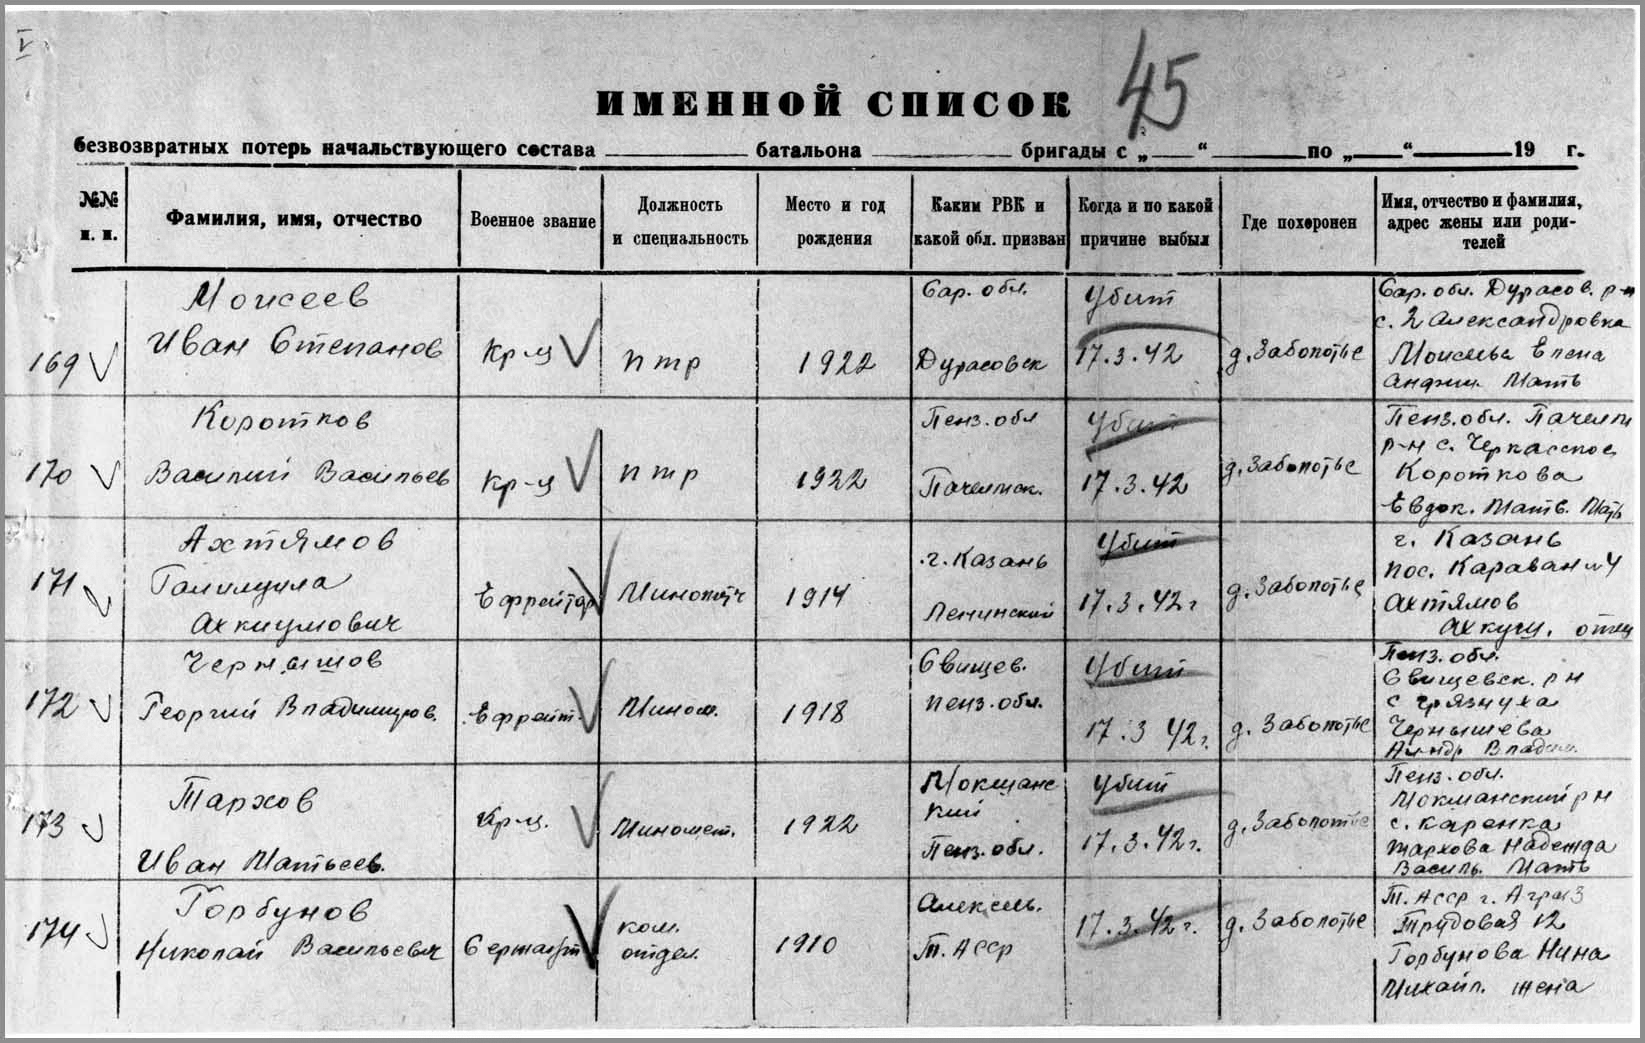 V
45
ИМЕННОЙ СПИСОК
безвозвратных потерь начальствующего состава ______ батальона ______ бригады с „___“ ______ по „___“ ______ 19 г.
№№ п. п.
Фамилия, имя, отчество
Военное звание
Должность и специальность
Место и год рождения
Каким РВК и какой обл. призван
Когда и по какой причине выбыл
Где похоронен
Имя, отчество и фамилия, адрес жены или родителей
169
Моисеев
Иван Степанов
Кр-ц
птр
1922
Сар. обл.
Дурасовск
Убит
17.3.42
д. Заболотье
Сар. обл. Дурасов. р-н
с. 2 Александровка
Моисеева Елена
Мать
170
Коротков
Василий Васильев
Кр-ц
птр
1922
Пенз. обл
Пачелмск.
Убит
17.3.42
д. Заболотье
Пенз. обл. Пачелм
р-н с. Черкасское
Короткова
Евдок. Матв. Мать
171
Ахтямов
Галимулла
Ахкиумович
Ефрейтор
Минометч
1914
г. Казань
Ленинский
Убит
17.3.42 г
д. Заболотье
г. Казань
пос. Караван
Ахтямов
Ахкуш. отец
172
Чернышов
Георгий Владимиров.
Ефрейт.
Мином.
1918
Свищев.
Пенз. обл.
Убит
17.3 42 г.
д. Заболотье
Пенз. обл.
Свищевск. р н
с Грязнуха
Чернышева
Владим.
173
Тархов
Иван Матвеев.
Кр-ц.
Миномет.
1922
Мокшанс
кий
Пенз. обл.
Убит
17.3.42 г.
д. Заболотье
Пенз. обл.
Мокшанский р н
с. Каренка
Тархова Надежда
Василь. Мать
174
Горбунов
Николай Васильевич
Сержант
ком.
отдел.
1910
Алексеев.
Т. АССР
17.3.42 г.
д. Заболотье
Т. АССР г. Агрыз
Трудовая 12
Горбунова Нина
Михайл. жена